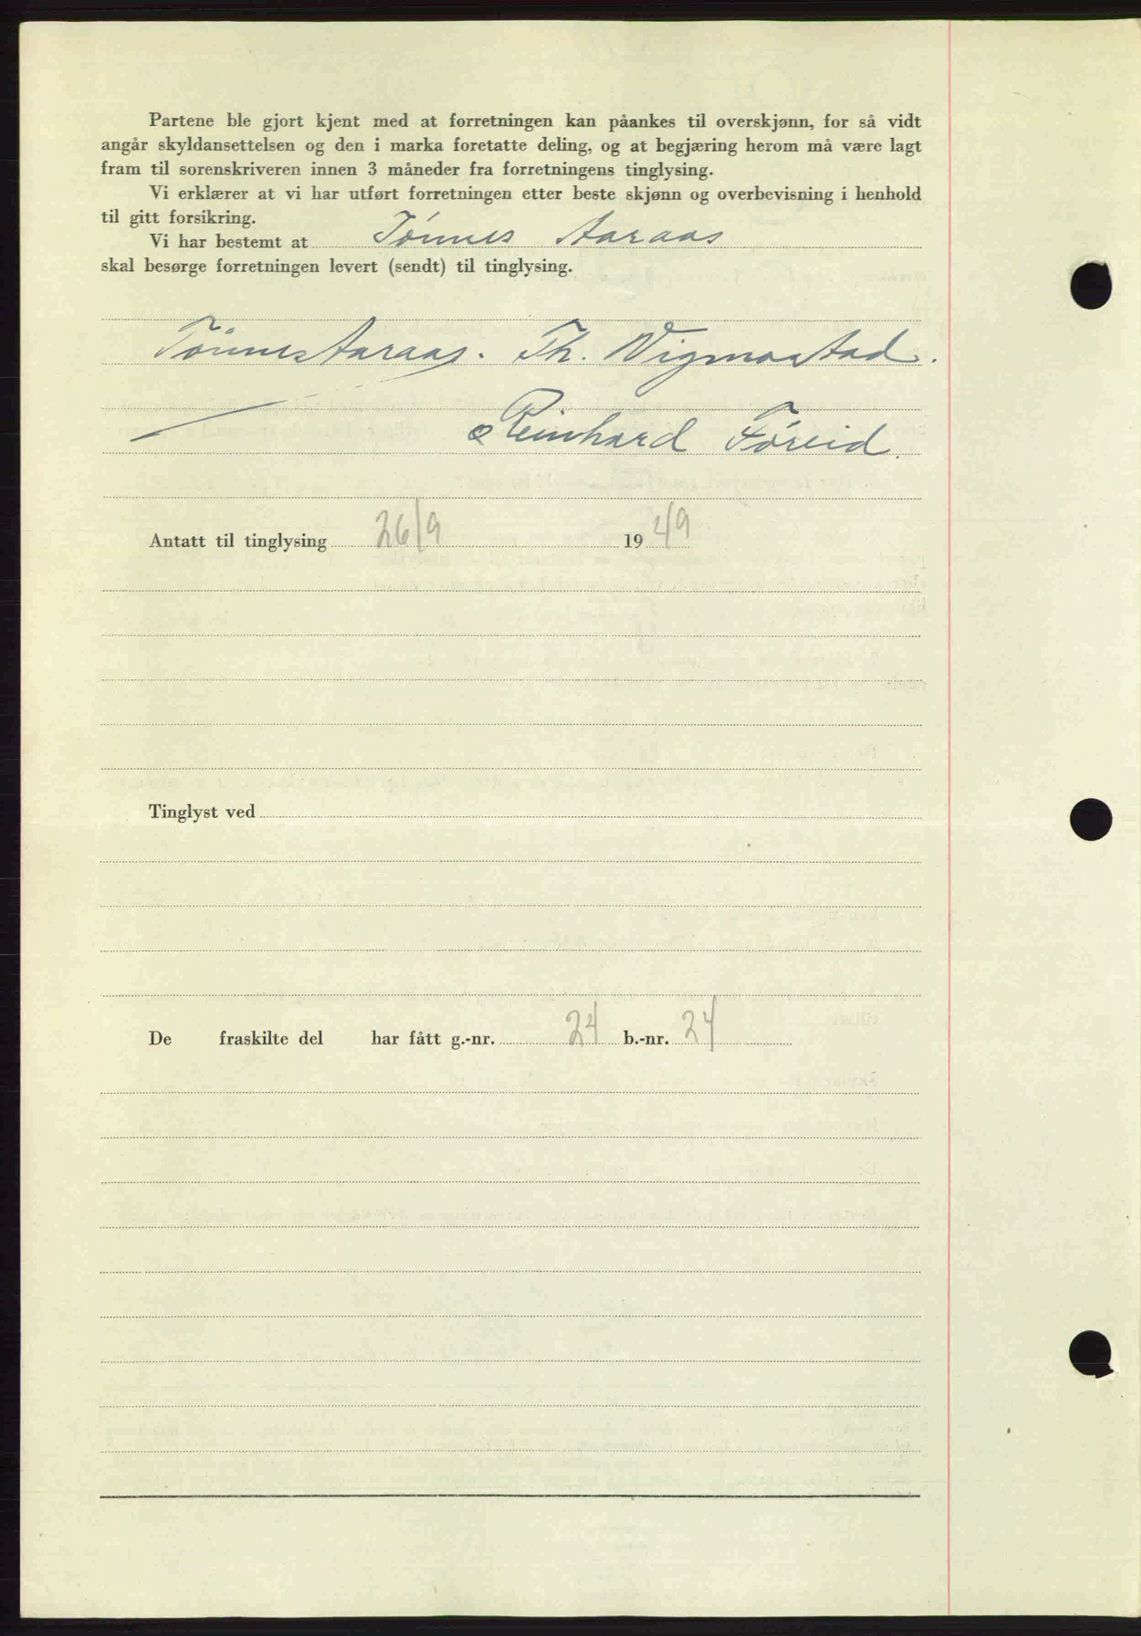 Partene ble gjort kjent med at forretningen kan påankes til overskjønn, for så vidt
angår skyldansettelsen og den i marka foretatte deling, og at begjæring herom må være lagt
fram til sorenskriveren innen 3 måneder fra forretningens tinglysing.
Vi erklærer at vi har utført forretningen etter beste skjønn og overbevisning i henhold
til gitt forsikring.
Vi har bestemt at Tönnes Aaraas
skal besørge forretningen levert (sendt) til tinglysing.
Tönnes Aaraas. Th. Vigmostad.
Reinhard Föreid.
Antatt til tinglysing 26/9 1949
Tinglyst ved
De fraskilte del har fått g.-nr. 24 b.-nr. 24